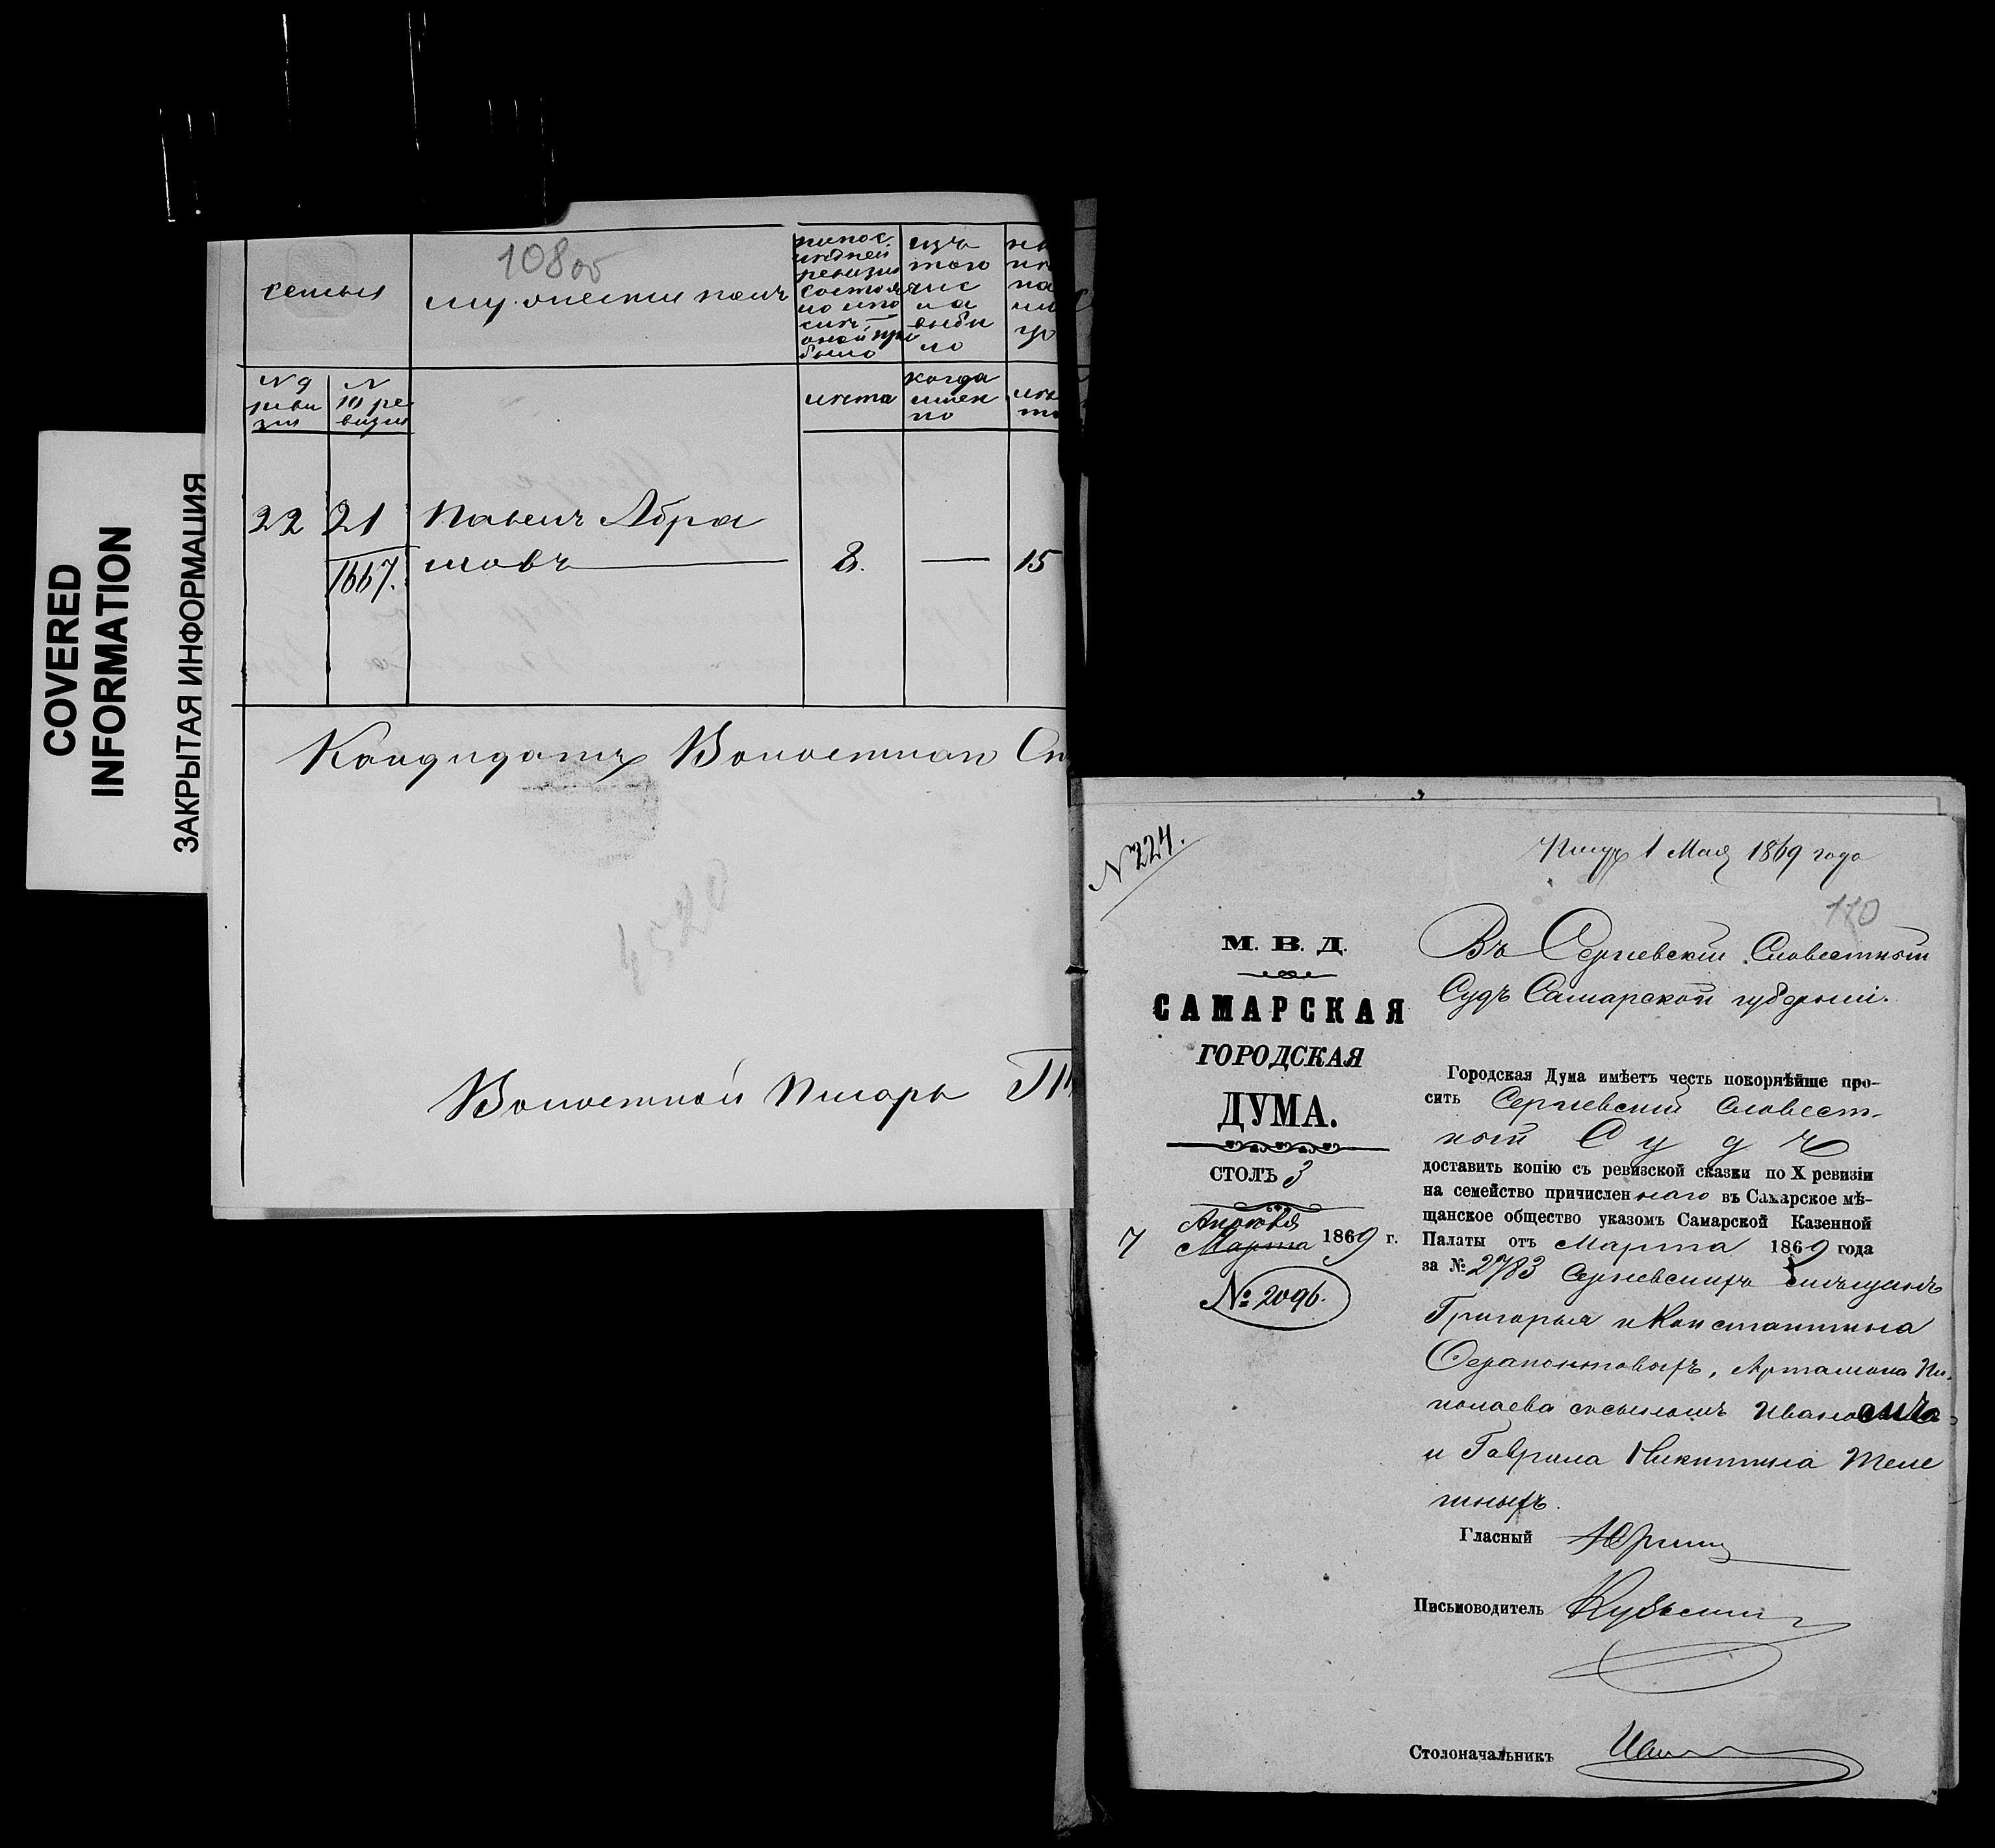 COVERED
INFORMATION
ЗАКРЫТАЯ ИНФОРМАЦИЯ
108 об
семья
мужескій полъ
изъ
того
чис
ла
выбы
ло
N 9
реви
зіи
N
10 ре
визіи
лѣта
когда
имен
но
22 21 Павелъ Абра
1667. мовъ 8. — 15
Кандидатъ Волостнаго
Волостной Писарь
N 224.
1 Мая 1869 года
110
М. В. Д.
САМАРСКАЯ
ГОРОДСКАЯ
ДУМА.
СТОЛЪ 3
Апрѣля
7 Марта 1869 г.
№ 2096.
Въ Сергіевскій Словестный
Судъ Самарской губерніи.
Городская Дума имѣетъ честь покорнѣйше про-
сить Сергіевскій Словест-
ный Судъ
доставить копію съ ревизской сказки по X ревизіи
на семейство причисленнаго въ Самарское мѣ-
щанское общество указомъ Самарской Казенной
Палаты отъ Марта 1869 года
за № 2783 Сергіевскихъ мѣщанъ
Григорья и Константина
Ферапонтовыхъ, Артамона Ни-
колаева съ сыномъ Иваномъ
и Гаврила Никитина Теле
гиныхъ.
Гласный Юринъ
Письмоводитель
Столоначальникъ